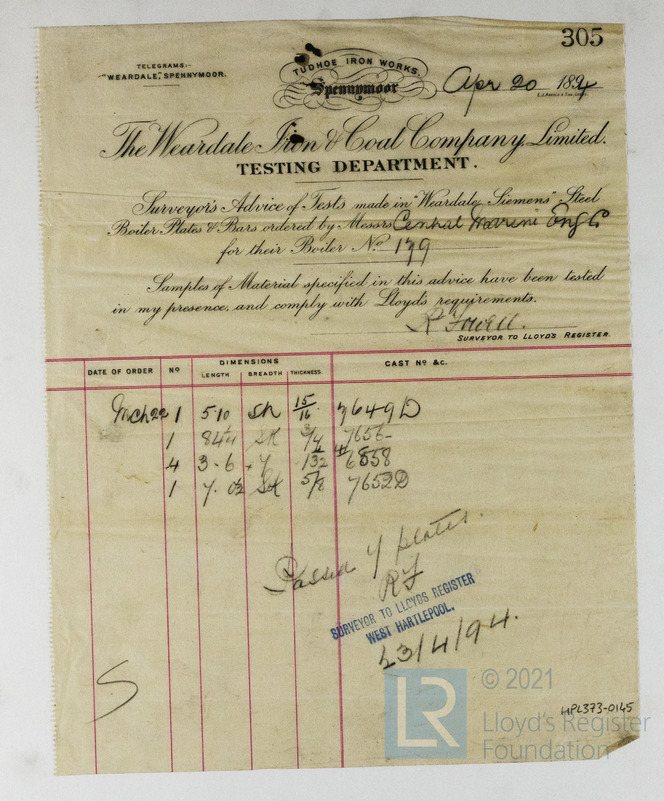 305
TELEGRAMS:-
"WEARDALE," SPENNYMOOR.
TUDHOE IRON WORKS.
Spennymoor
Apr 20 1894
The Weardale Iron & Coal Company, Limited.
TESTING DEPARTMENT.
Surveyor's Advice of Tests made in "Weardale-Siemens" Steel
Boiler Plates & Bars ordered by Messrs Central Marine Eng Co
for their Boiler No 179
Samples of Material specified in this advice have been tested
in my presence, and comply with Lloyd's requirements.
R Fowell.
SURVEYOR TO LLOYD'S REGISTER
DATE OF ORDER No DIMENSIONS CAST No &c.
LENGTH BREADTH THICKNESS
Mch 22 1 5·10 Sk 15/16 7649D
1 SK 3/4 7656
4 3-6 6858
1 Sk 5/8 7652D
Passed 7 plates.
RF
SURVEYOR TO LLOYDS REGISTER
WEST HARTLEPOOL.
23/4/94.
© 2021
LR
Lloyd's Register
Foundation
HPL373-0145